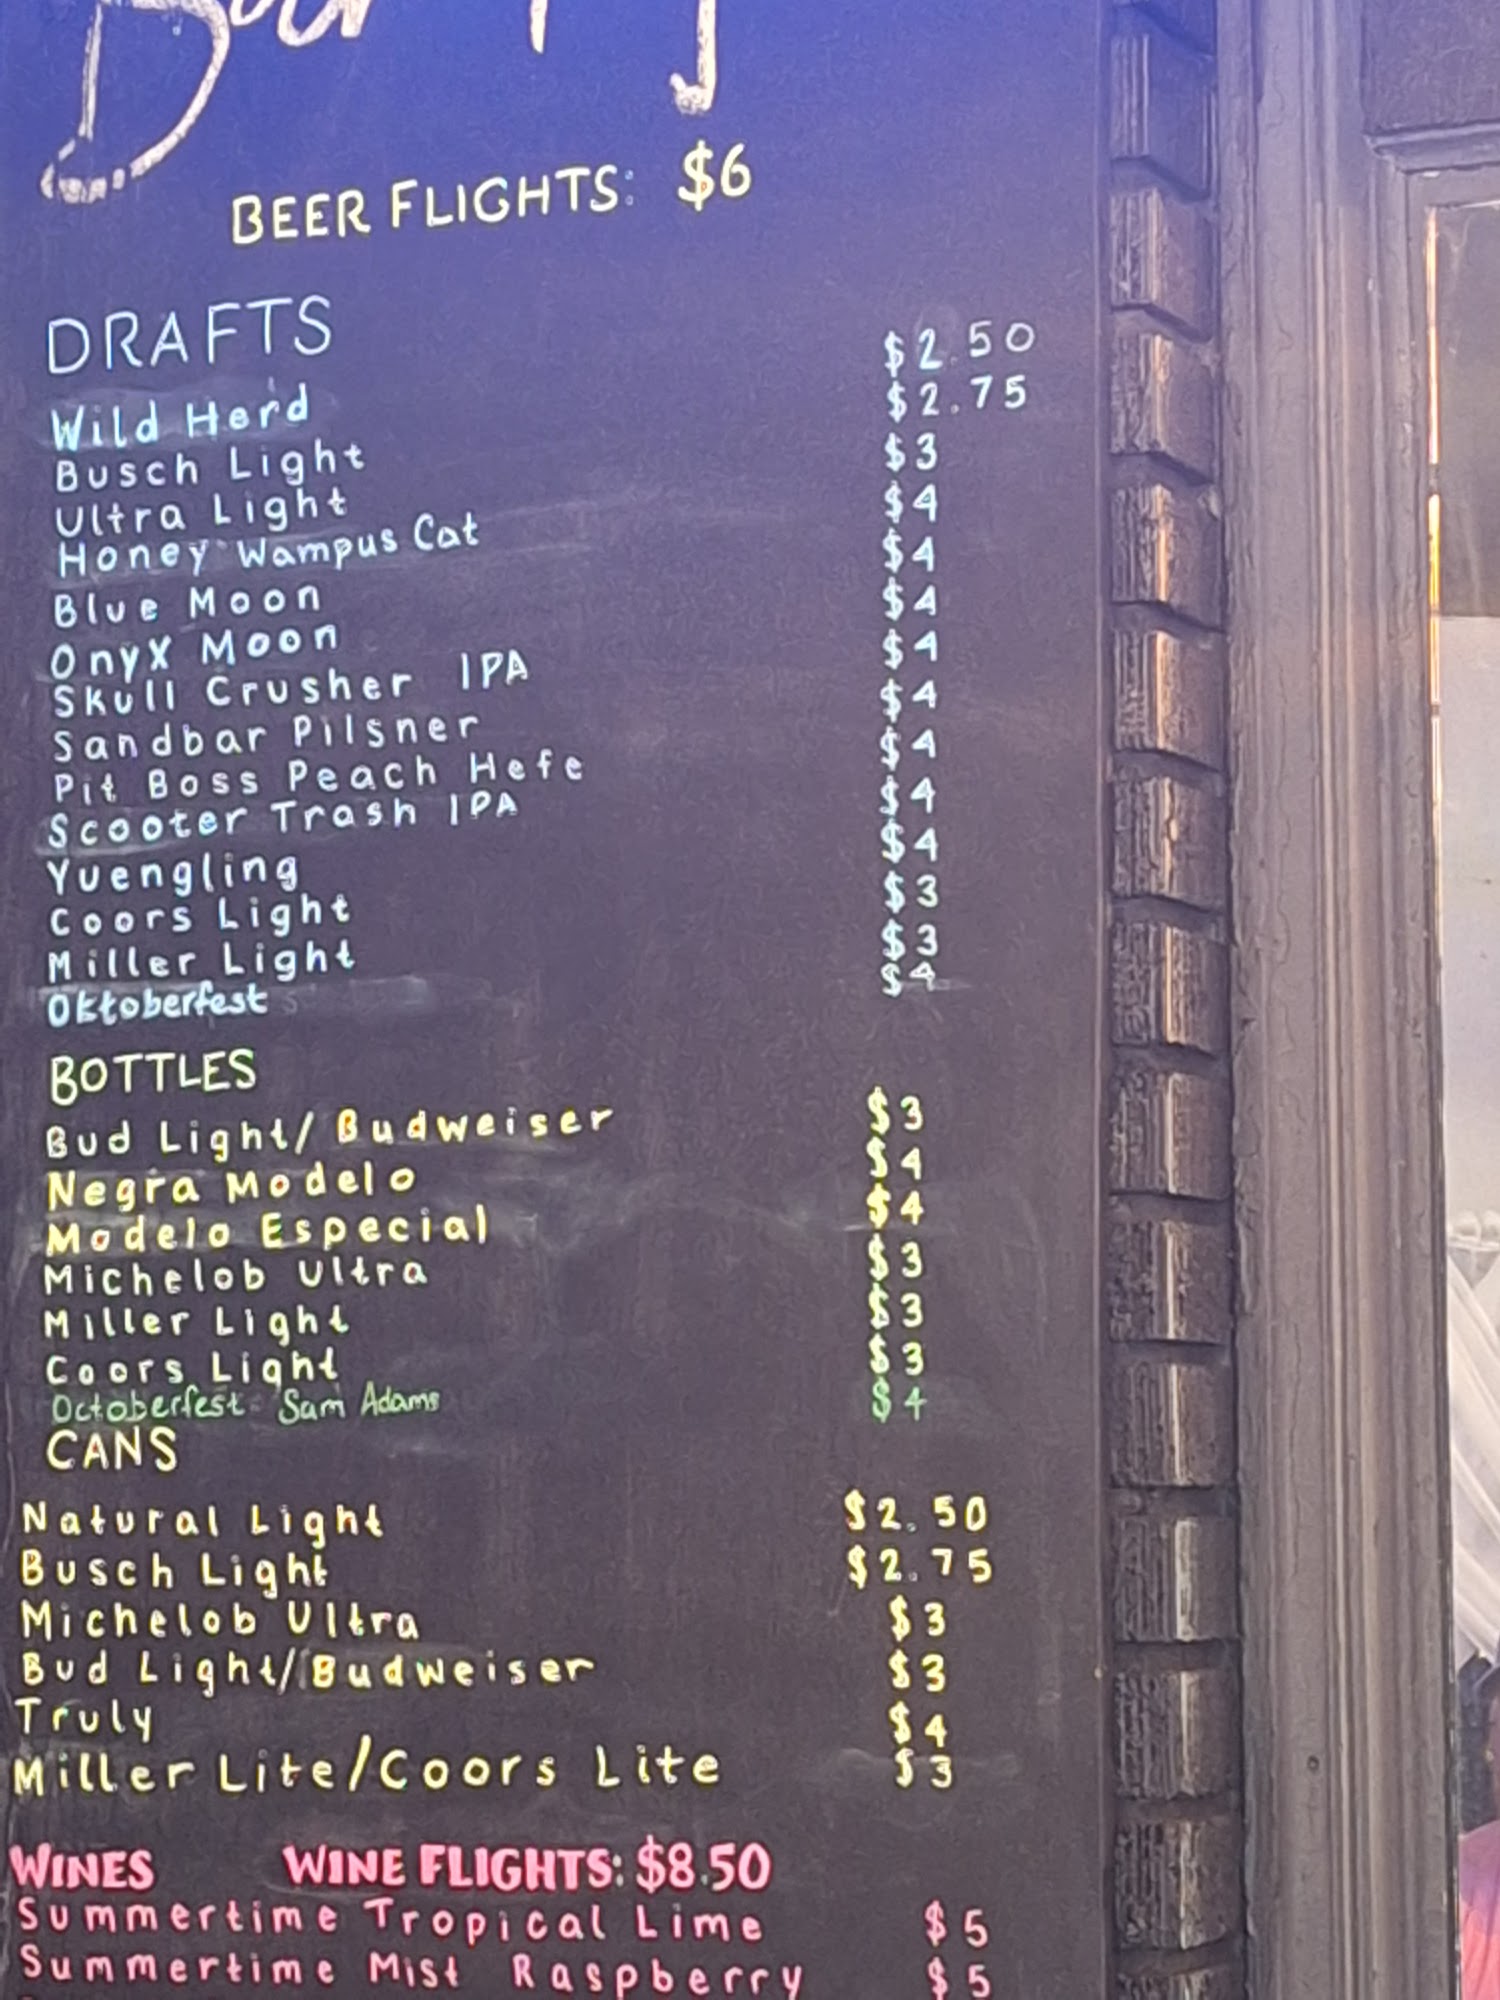 BEER FLIGHTS: $6
DRAFTS
Wild Herd $2.50
Busch Light $2.75
Ultra Light $3
Honey Wampus Cat $4
Blue Moon $4
Onyx Moon $4
Skull Crusher IPA $4
Sandbar Pilsner $4
Pit Boss Peach Hefe $4
Scooter Trash IPA $4
Yuengling $4
Coors Light $3
Miller Light $3
Oktoberfest $4
BOTTLES
Bud Light/Budweiser $3
Negra Modelo $4
Modelo Especial $4
Michelob Ultra $3
Miller Light $3
Coors Light $3
Octoberfest- Sam Adams $4
CANS
Natural Light $2.50
Busch Light $2.75
Michelob Ultra $3
Bud Light/Budweiser $3
Truly $4
Miller Lite/Coors Lite $3
WINES WINE FLIGHTS: $8.50
Summertime Tropical Lime $5
Summertime Mist Raspberry $5